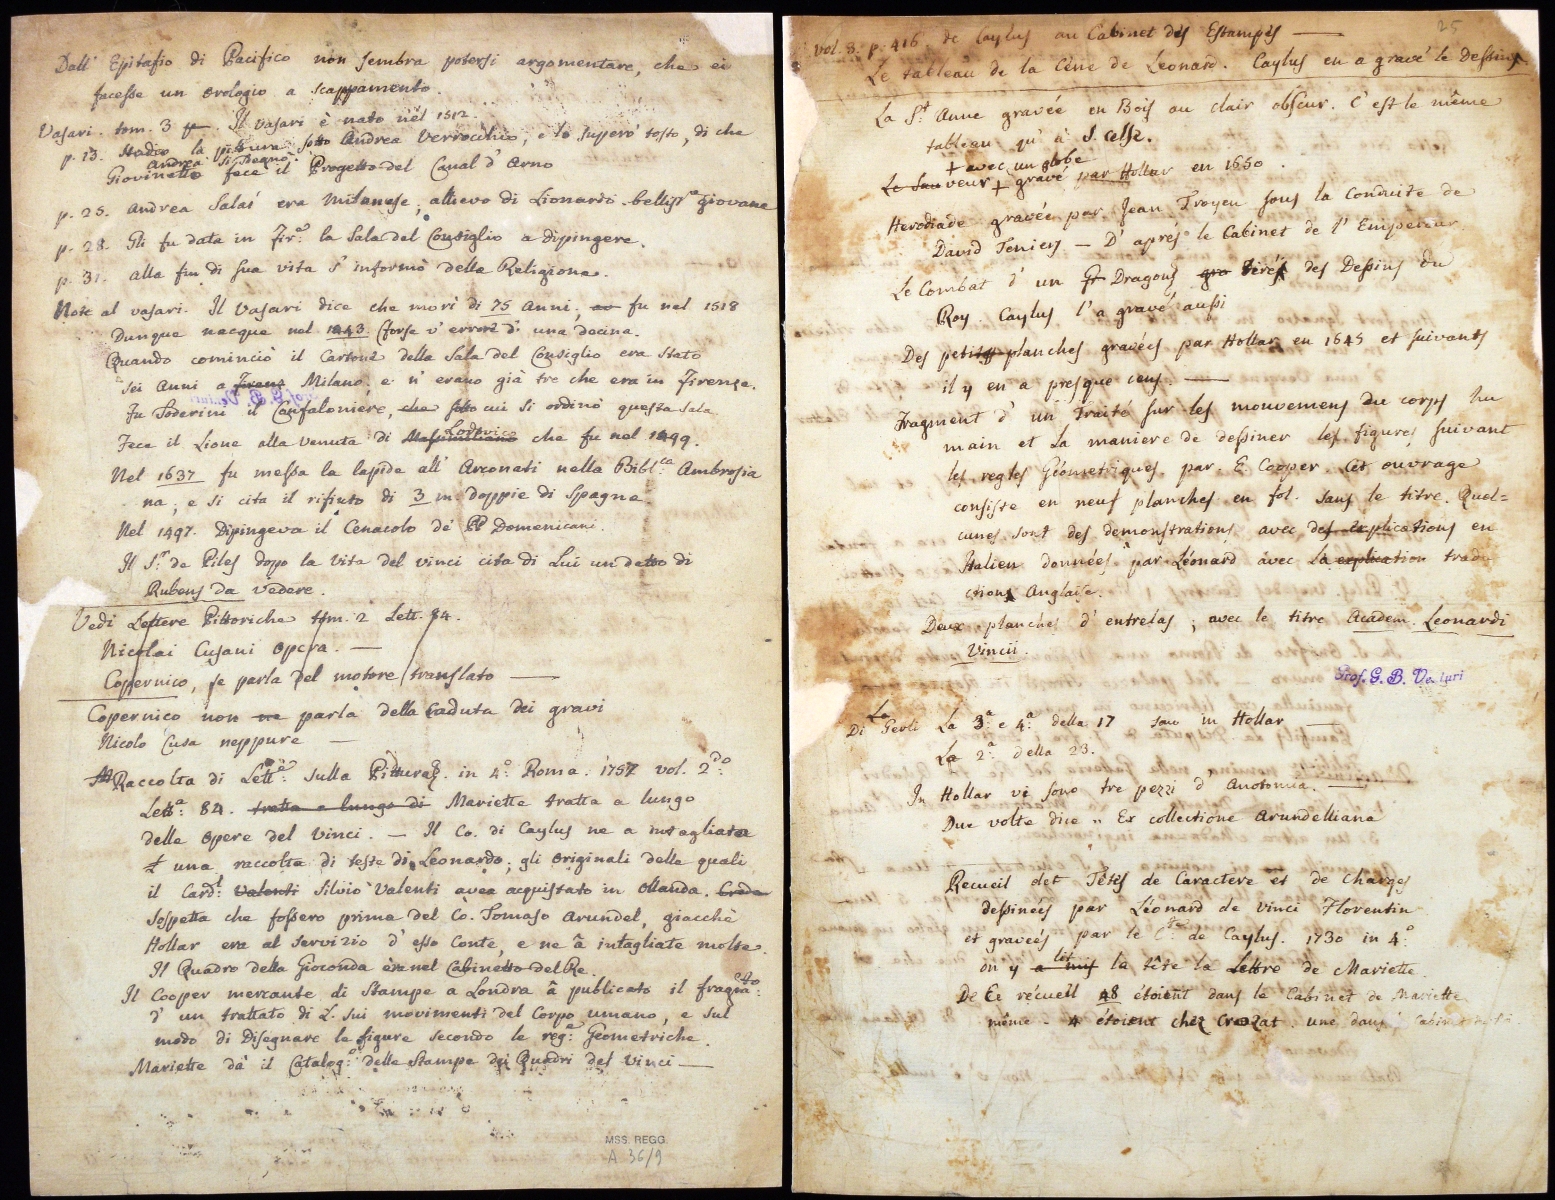 Dall' Epitafio di Pacifico non sembra potersi argomentare, che ei
facesse un orologio a scappamento.
Vasari. tom. 3 Il Vasari è nato nel 1512.
p. 13. Studiò la pittura sotto Andrea Verrocchio, e lo superò tosto, di che
Andrea si sdegnò.
Giovinetto fece il Progetto del Canal d' Arno
p. 25. Andrea Salai era Milanese, allievo di Lionardo. belliss.o giovane
p. 28. Gli fu data in Fir.e la Sala del Consiglio a dipingere.
p. 37. alla fin di sua vita s' informò della Religione.
Note al vasari. Il Vasari dice che morì di 75 anni, fu nel 1518
Dunque nacque nel 1443 (forse v' error d' una decina.
Quando cominciò il Cartone della Sala del Consiglio era stato
sei Anni a Firenz Milano, e n' erano già tre che era in Firenze.
Fu Soderini il Gonfaloniere, che sotto cui si ordinò questa sala
Lodovico
Fece il Lione alla venuta di Massimiliano che fu nel 1499.
Nel 1637 fu messa la lapide all' Arconati nella Bibl.ca Ambrosia
na, e si cita il rifiuto di 3 m doppie di Spagna
Nel 1497. Dipingeva il Cenacolo de' PP Domenicani.
Il S.r de Piles dopo la Vita del Vinci cita di Lui un detto di
Rubens da vedere.
Vedi Lettere Pittoriche tom. 2 Lett. 84.
Nicolai Cusani opera. —
Copernico, se parla del motore translato —
Copernico non ne parla della caduta dei gravi
Nicolo Cusa neppure —
Raccolta di Lett.e sulla Pittura &. in 4.o Roma. 1757 vol. 2do
Lett.a 84. tratta a lungo di Mariette tratta a lungo
delle opere del Vinci. — Il Co. di Caylus ne a intagliata
una raccolta di teste di Leonardo; gli originali delle quali
il Card.l Valenti Silvio Valenti avea acquistato in ollanda. Crede
Sospetta che fossero prima del Co. Tomaso Arundel, giacchè
Hollar era al servizio d' esso Conte, e ne à intagliate molte.
Il Quadro della Gioconda era nel Cabinetto del Re.
Il Cooper mercante di Stampe a Londra à publicato il fragm.to
d' un trattato di L. sui movimenti del Corpo umano, e sul
modo di Disegnare le figure secondo le reg.e Geometriche.
Mariette dà il Catalog.o delle Stampe dei Quadri del Vinci —
MSS. REGG.
A 36/9
25
vol. 8. p. 416. de Caylus au Cabinet des Estampes —
Le tableau de la Cène de Leonard. Caylus en a gravé le dessins
La S.t Anne gravée en Bois au clair obscur. C' est le même
tableau qu' à S. Celse.
+ avec un globe
Le Sauveur + gravé par Hollar en 1650.
Herodiade gravée par Jean Troyen sous la conduite de
David Teniers — D' après le Cabinet de l' Empereur
Le Combat d' un Dragons tirés des Dessins du
Roy. Caylus l' a gravé aussi
Des petits planches gravées par Hollar en 1645 et suivants
il y en a presque cens. —
Fragment d' un Traité sur les mouvemens du corps hu
main et la maniere de dessiner les figures suivant
les regles Géometriques. par. E. Cooper. Cet ouvrage
consiste en neuf planches en fol. sans le titre. Quel=
cunes sont des demonstrations avec des explications en
Italien données par Léonard avec la explication tradu
ctions Anglaise.
Deux planches d' entrelas, avec le titre Academ. Leonardi
Vincii.
Prof. G. B. Venturi
Di La Gerli La 3.a e 4.a della 17 son in Hollar —
La 2.a della 23.
In Hollar vi sono tre pezzi d' Anotomia. —
Due volte dice „ Ex collectione Arundelliana
Recueil det Têtes de Caractere et de charges
dessinées par Léonard de Vinci Florentin
et gravées par le C.te de Caylus. 1730 in 4.o
on y a mis la tête la Lettre de Mariette
De Ce récueil 48 étoient dans le Cabinet de Mariette
même - 4 étoient chez Crozat. une dans